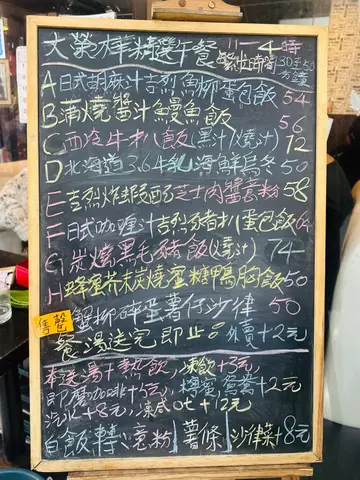 大榮華精選午餐 繁忙時間 11-4時 30至50分鐘
A 日式胡麻汁吉烈魚柳蛋包飯 54
B 蒲燒醬汁鰻魚飯 56
C 西冷牛扒飯(黑汁/燒汁) 72
D 北海道3.6牛乳海鮮烏冬 50
E 吉烈炸蝦配芝士肉醬意粉 58
F 日式咖喱汁吉烈豬扒蛋包飯 64
G 炭燒黑毛豬飯(燒汁) 74
H 蜂蜜芥末炭燒蜜糖鴨胸飯 50
售罄 蟹柳碎蛋薯仔沙律 50
餐湯送完即止。 外賣+2元
奉送湯+熱飲,凍飲+3元,
即磨咖啡+5元,梅蜜,鴛鴦+2元
汽水+8元,凍咸07+12元
白飯轉:意粉|薯條|沙律菜+8元